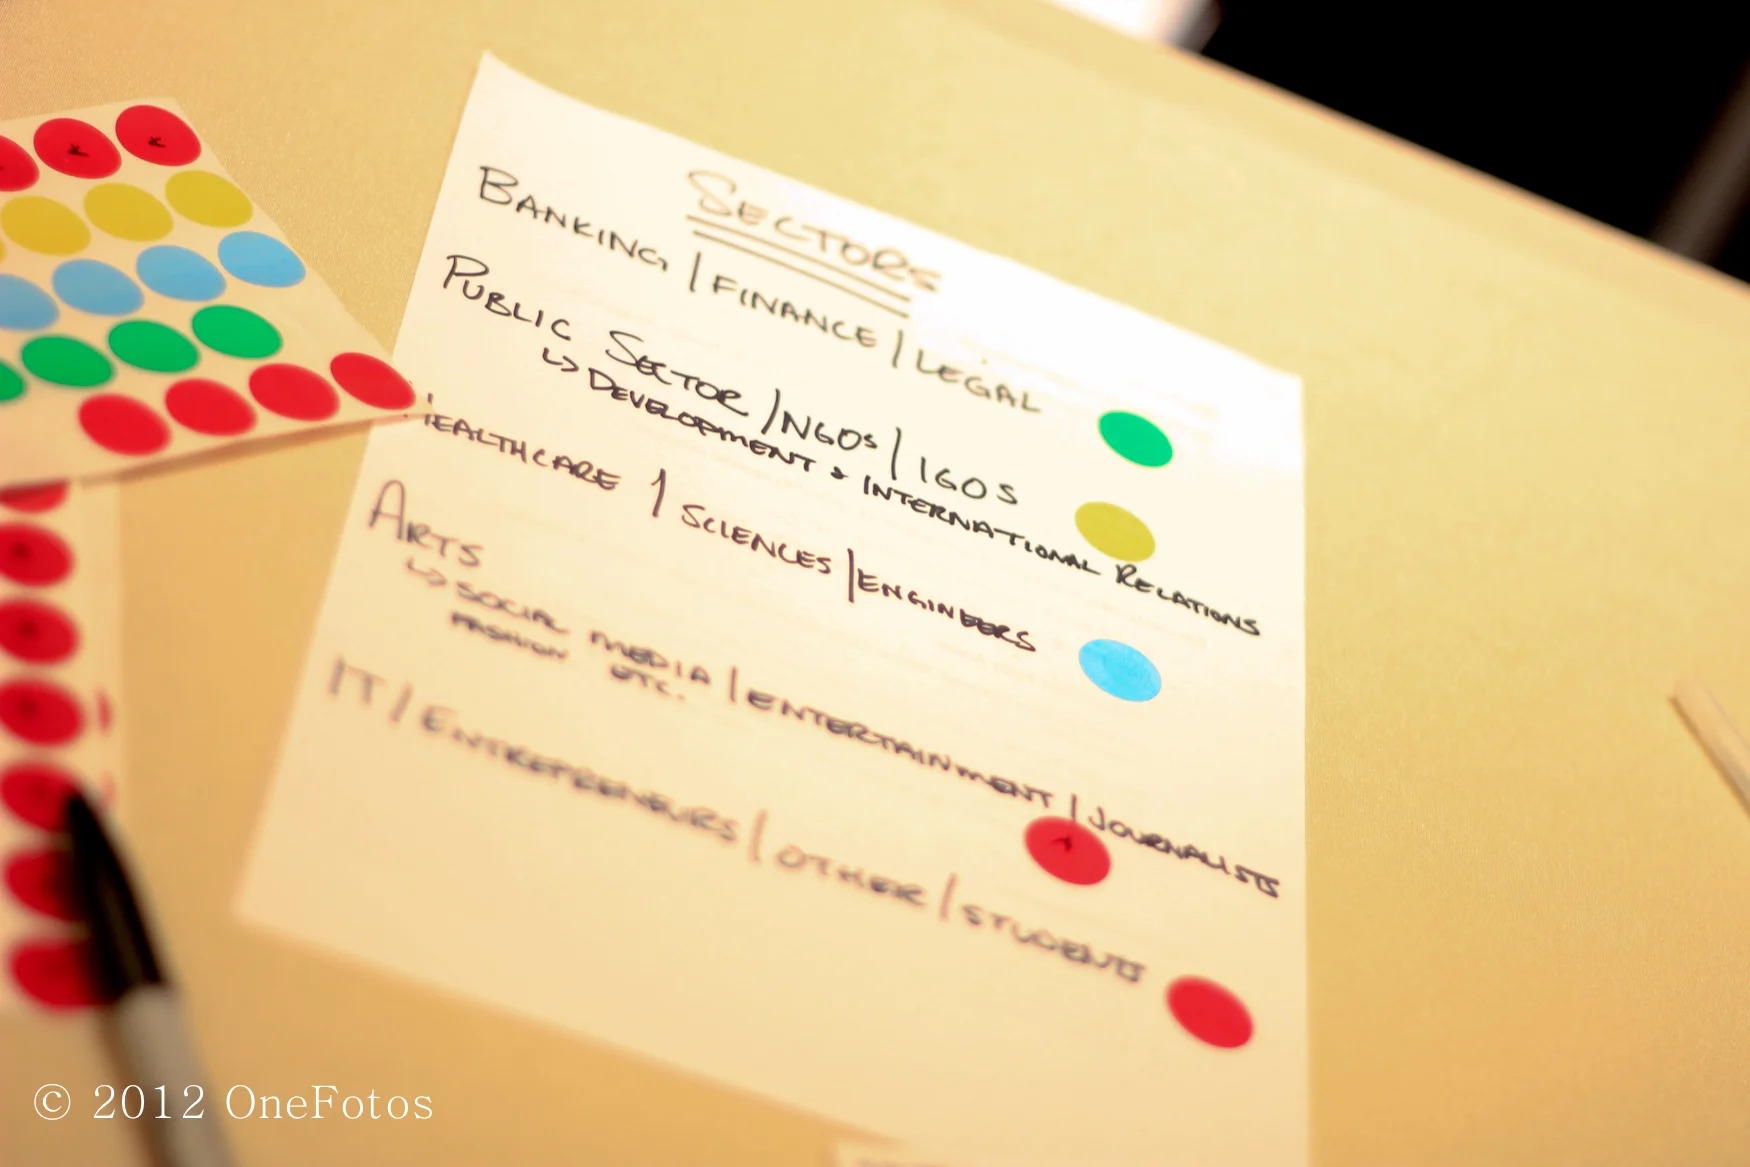 SECTORS
BANKING / FINANCE / LEGAL
PUBLIC SECTOR / NGOs / IGOS
↳ DEVELOPMENT & INTERNATIONAL RELATIONS
HEALTHCARE / SCIENCES / ENGINEERS
ARTS
↳ SOCIAL MEDIA / ENTERTAINMENT / JOURNALISTS
FASHION ETC.
IT / ENTREPRENEURS / OTHER / STUDENTS
© 2012 OneFotos